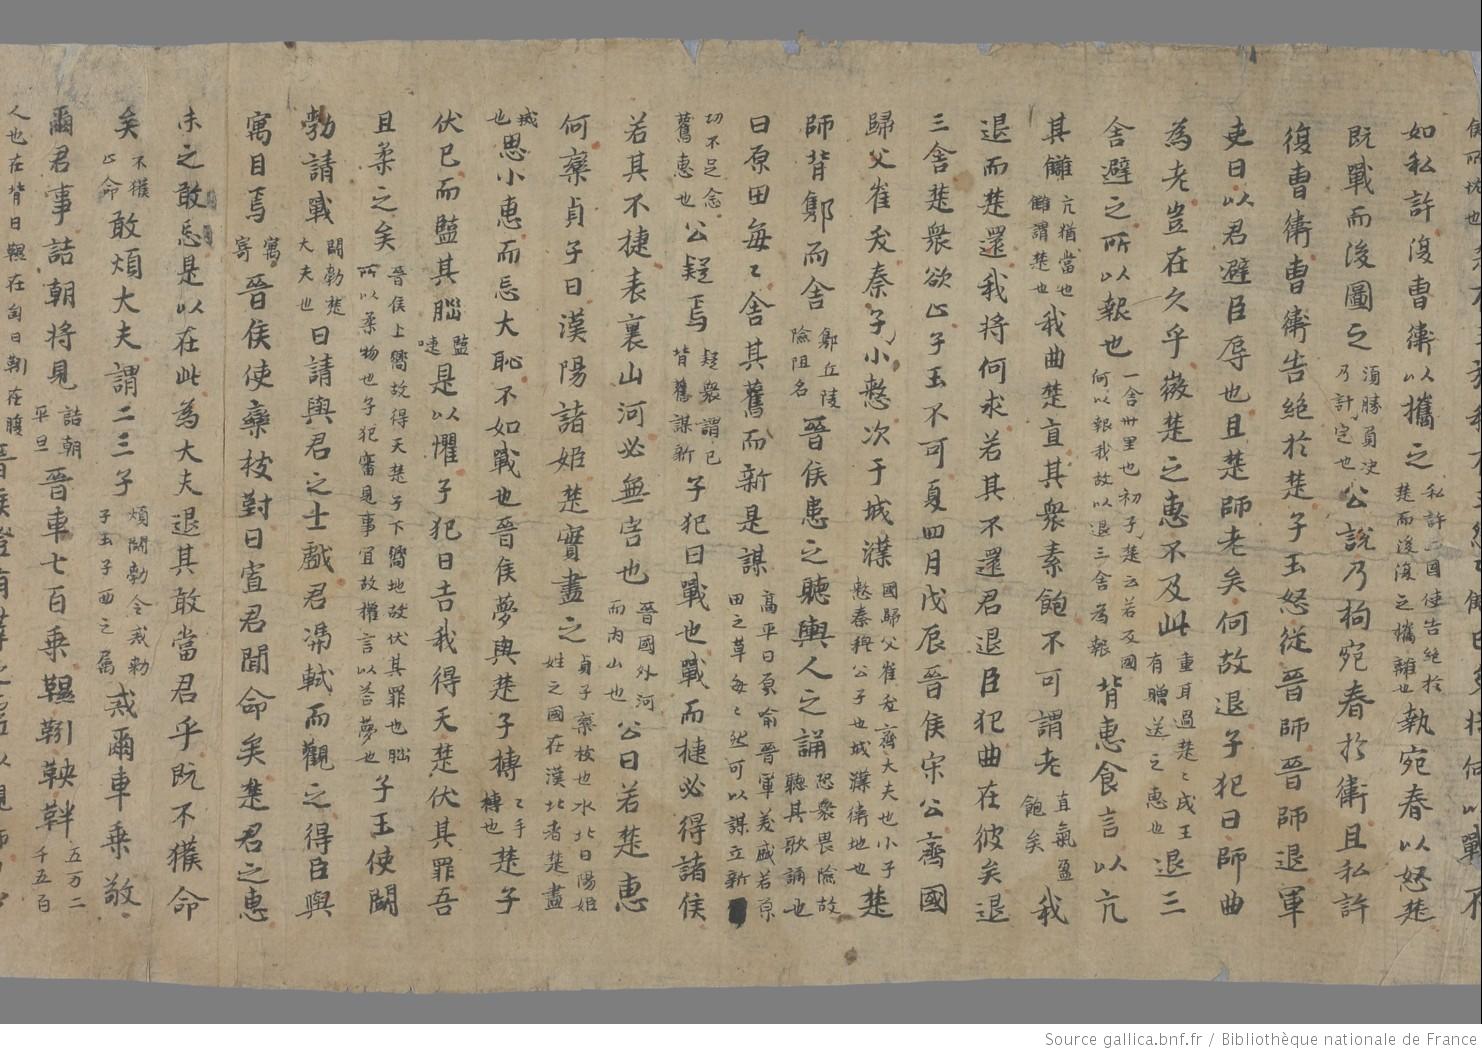 何以戰不
如私許復曹衛以攜之私許二國使告絕於楚而後復之攜離也執宛春以怒楚
既戰而後圖之須勝負決乃計定也公說乃拘宛春於衛且私許
復曹衛曹衛告絕於楚子玉怒從晉師晉師退軍
吏曰以君避臣辱也且楚師老矣何故退子犯曰師曲
為老豈在久乎微楚之惠不及此重耳過楚楚成王有贈送之惠也退三
舍避之所以報也一舍卅里也初子楚云若反國何以報我故以退三舍為報背惠食言以亢
其讎亢猶當也讎謂楚也我曲楚直其衆素飽不可謂老直氣盈飽矣我
退而楚還我將何求若其不還君退臣犯曲在彼矣退
三舍楚衆欲止子玉不可夏四月戊辰晉侯宋公齊國
歸父崔夭秦子小憖次于城濮國歸父崔夭齊大夫也小子憖秦穆公子也城濮衛地也楚
師背鄬而舍鄬丘陵險阻名晉侯患之聽輿人之誦恐衆畏險故聽其歌誦也
曰原田每々舍其舊而新是謀高平曰原喻晉軍美盛若原田之草每々然可以謀立新
切不足念舊惠也公疑焉疑衆謂已背舊謀新子犯曰戰也戰而捷必得諸侯
若其不捷表裏山河必無害也晉國外河而內山也公曰若楚惠
何欒貞子曰漢陽諸姬楚實盡之貞子欒枝也水北曰陽姬姓之國在漢北者楚盡
烕也思小惠而忘大恥不如戰也晉侯夢與楚子搏々手搏也楚子
伏己而盬其腦盬㖡是以懼子犯曰吉我得天楚伏其罪吾
且柔之矣晉侯上嚮故得天楚子下嚮地故伏其罪也腦所以柔物也子犯審見事宜故權言以荅夢也子玉使鬭
勃請戰鬭勃楚大夫也曰請與君之士戲君馮軾而觀之得臣與
寓目焉寓寄晉侯使欒枝對曰寡君聞命矣楚君之惠
未之敢忘是以在此為大夫退其敢當君乎既不獲命
矣不獲止命敢煩大夫謂二三子煩鬭勃令戒勑子玉子西之属戒爾車乘敬
爾君事詰朝將見詰朝平旦晉車七百乘韅靷鞅靽五万二千五百
人也在背曰韅在匈曰靷在腹